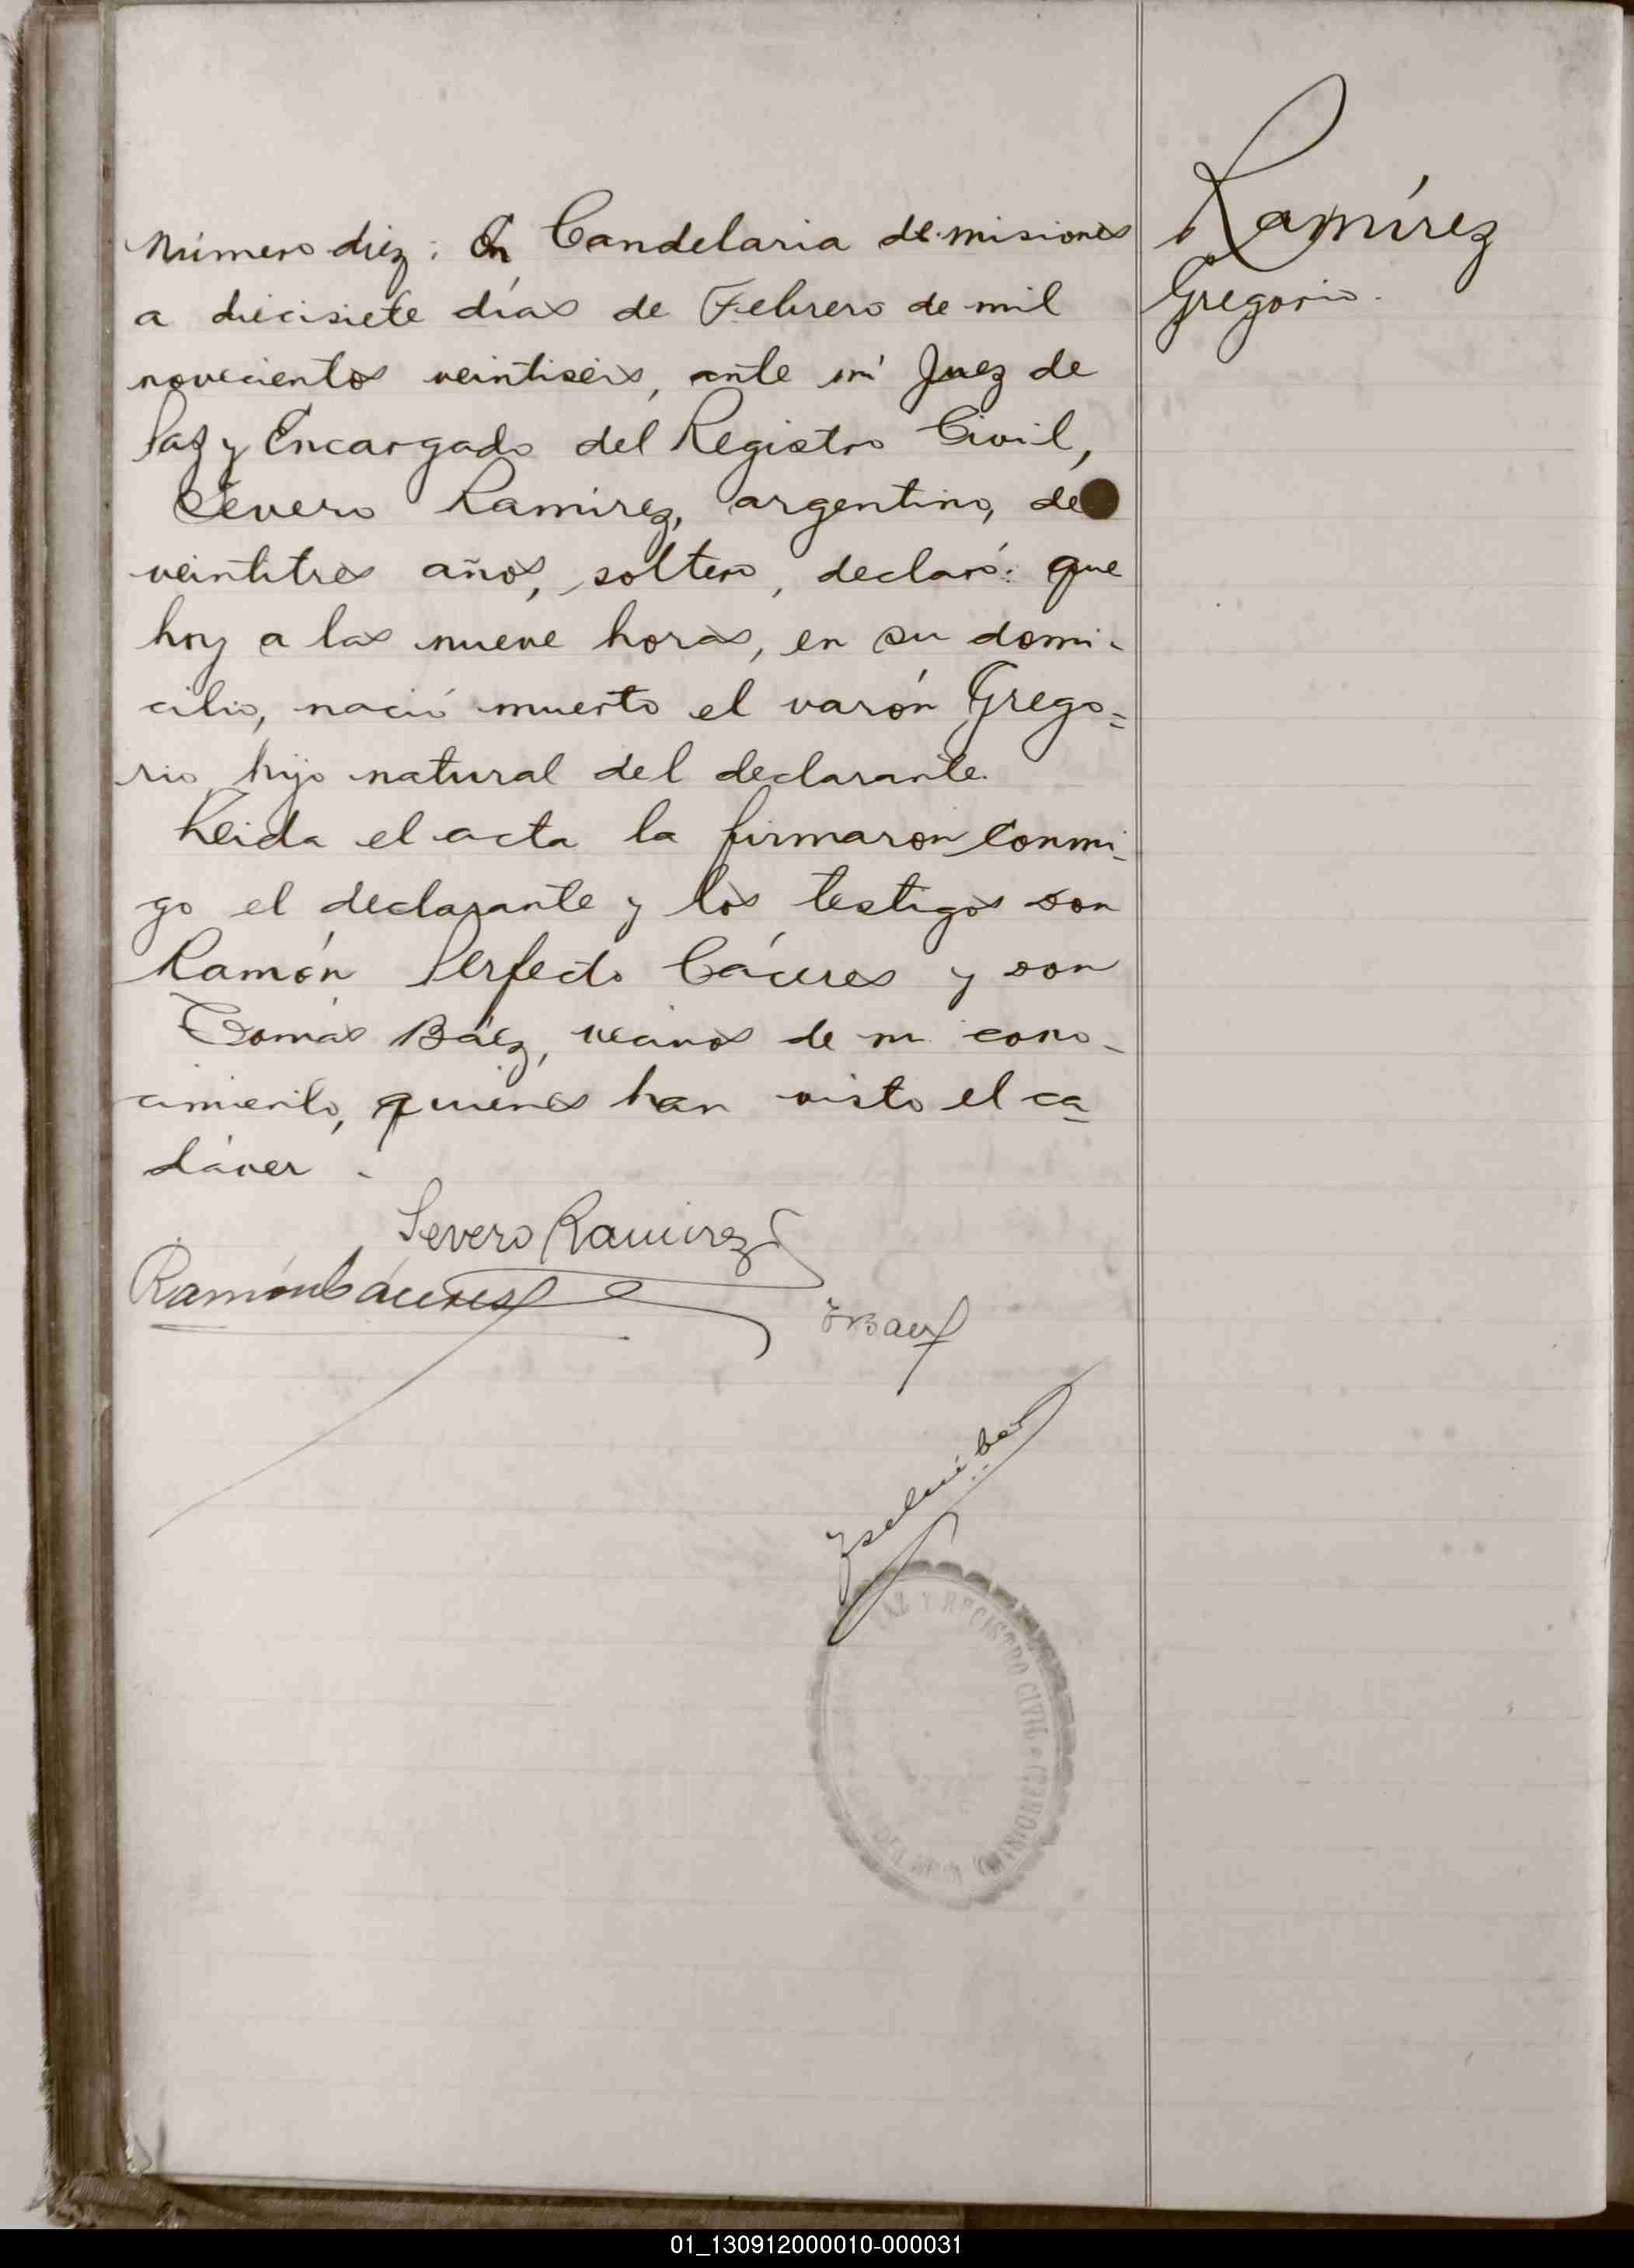 Número diez: En Candelaria de misiones
a diecisiete días de Febrero de mil
novecientos veintiseis, ante mí Juez de
Paz y Encargado del Registro Civil,
Severo Ramírez, argentino, de
veintitres años, soltero, declaró: que
hoy a las nueve horas, en su domi-
cilio, nació muerto el varón Grego=
rio hijo natural del declarante.
Leida el acta la firmaron conmi-
go el declarante y los testigos don
Ramón Perfecto Cáceres y don
Tomás Báez, vecinos de mi cono-
cimiento, quienes han visto el ca-
dáver.
Ramírez
Gregorio.
Severo Ramirez
Ramón Cáceres
TBaez
PAZ Y REGISTRO CIVIL
01_130912000010-000031